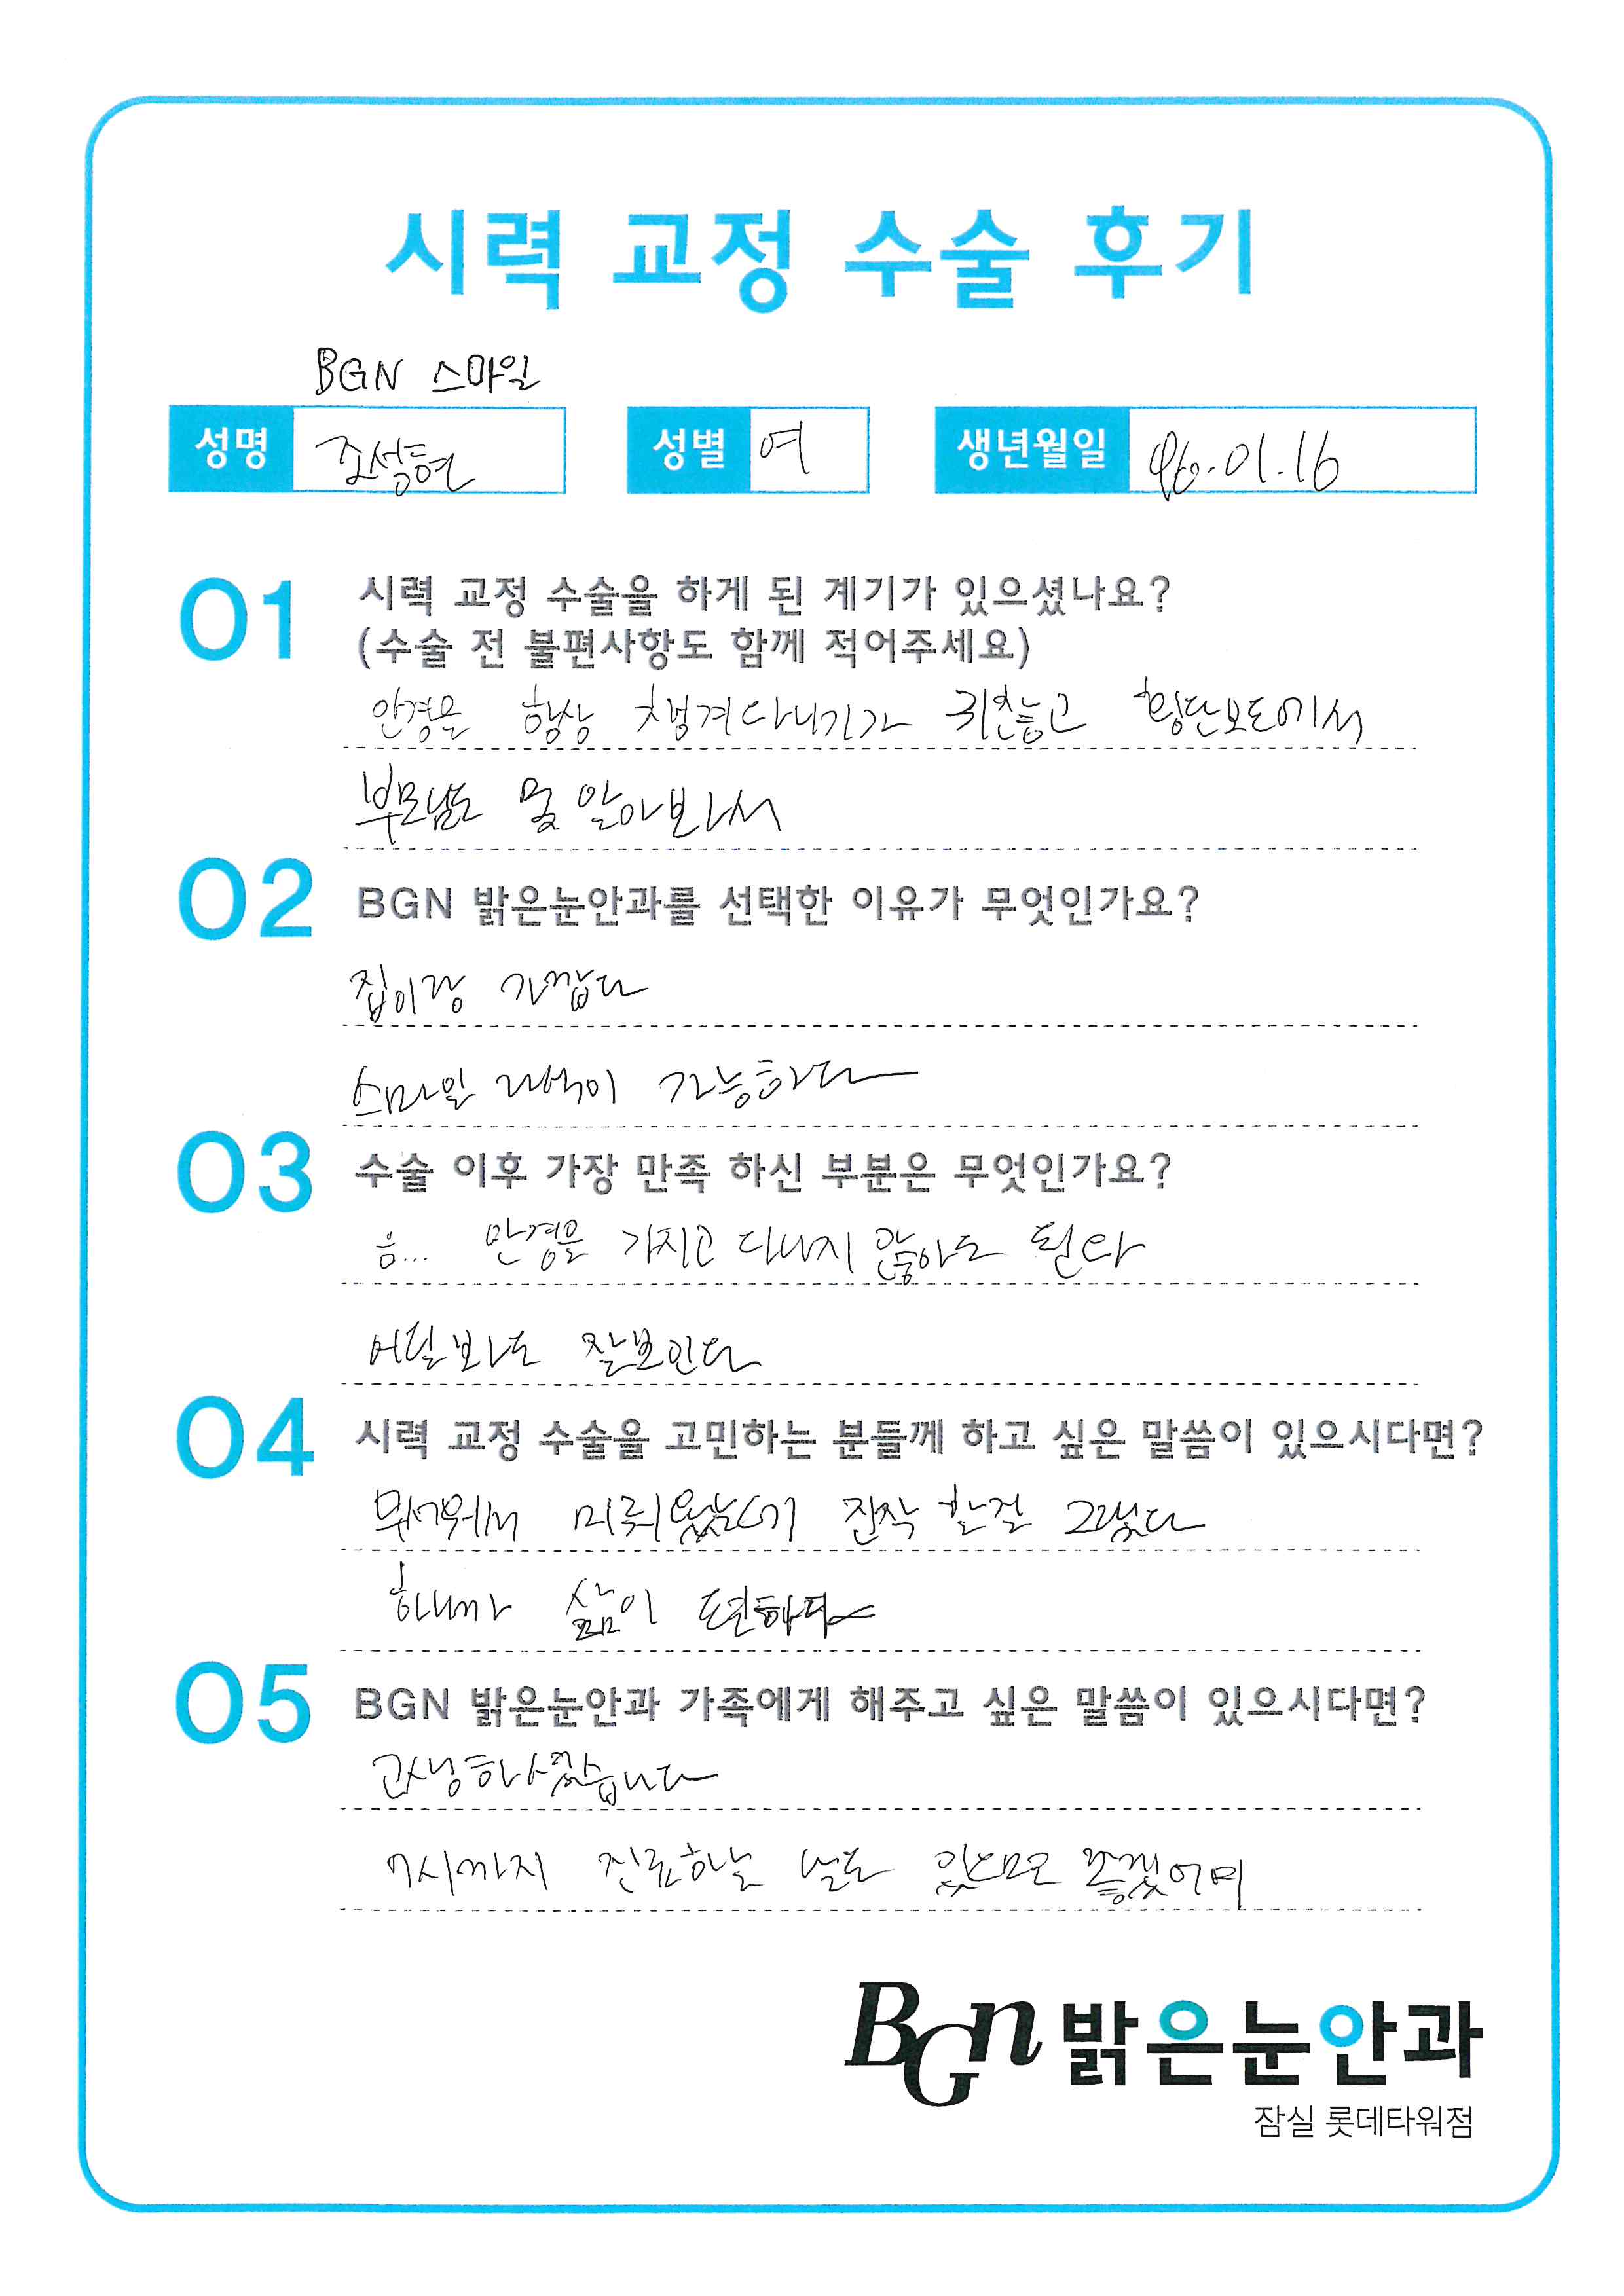 시력 교정 수술 후기
BGN 스마일
성명 조성현 성별 여 생년월일 96.01.16
01 시력 교정 수술을 하게 된 계기가 있으셨나요?
(수술 전 불편사항도 함께 적어주세요)
안경을 항상 챙겨다니기가 귀찮고 횡단보도에서
부모님도 못 알아봐서
02 BGN 밝은눈안과를 선택한 이유가 무엇인가요?
집이랑 가깝다
스마일 라식이 가능하다
03 수술 이후 가장 만족 하신 부분은 무엇인가요?
음... 안경을 가지고 다니지 않아도 된다
어딜봐도 잘보인다
04 시력 교정 수술을 고민하는 분들께 하고 싶은 말씀이 있으시다면?
무서워서 미뤄왔는데 진작 할걸 그랬다
하니까 삶이 편하다
05 BGN 밝은눈안과 가족에게 해주고 싶은 말씀이 있으시다면?
고생하셨습니다
7시까지 진료하는 날도 있으면 좋겠어요
BGN 밝은눈안과
잠실 롯데타워점